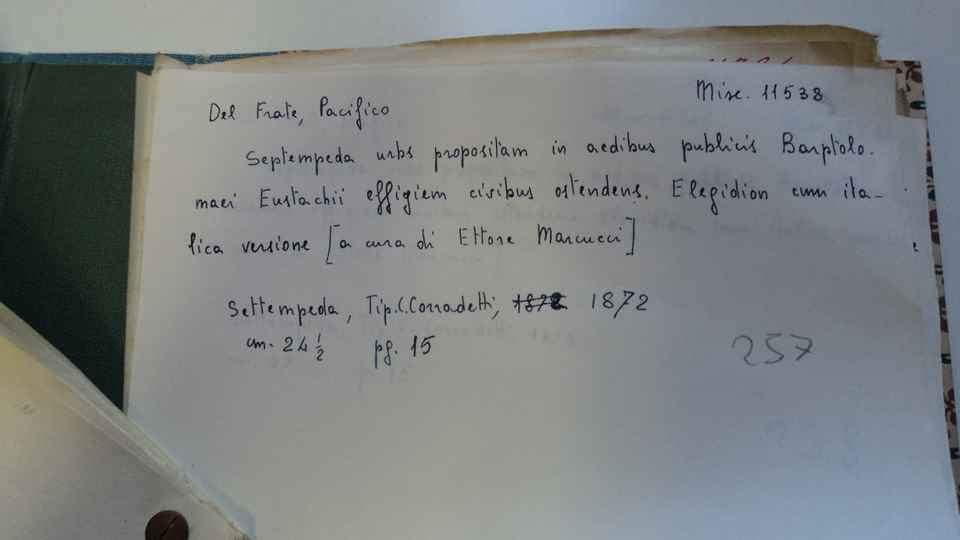 Misc. 11538
Del Frate, Pacifico
Septempeda urbs propositam in aedibus publicis Barptolo-
maei Eustachii effigiem civibus ostendens. Elegidion cum ita-
lica versione [a cura di Ettore Marcucci]
Settempeda, Tip. C. Corradetti, 1872 1872
cm. 24 1/2 pg. 15
257